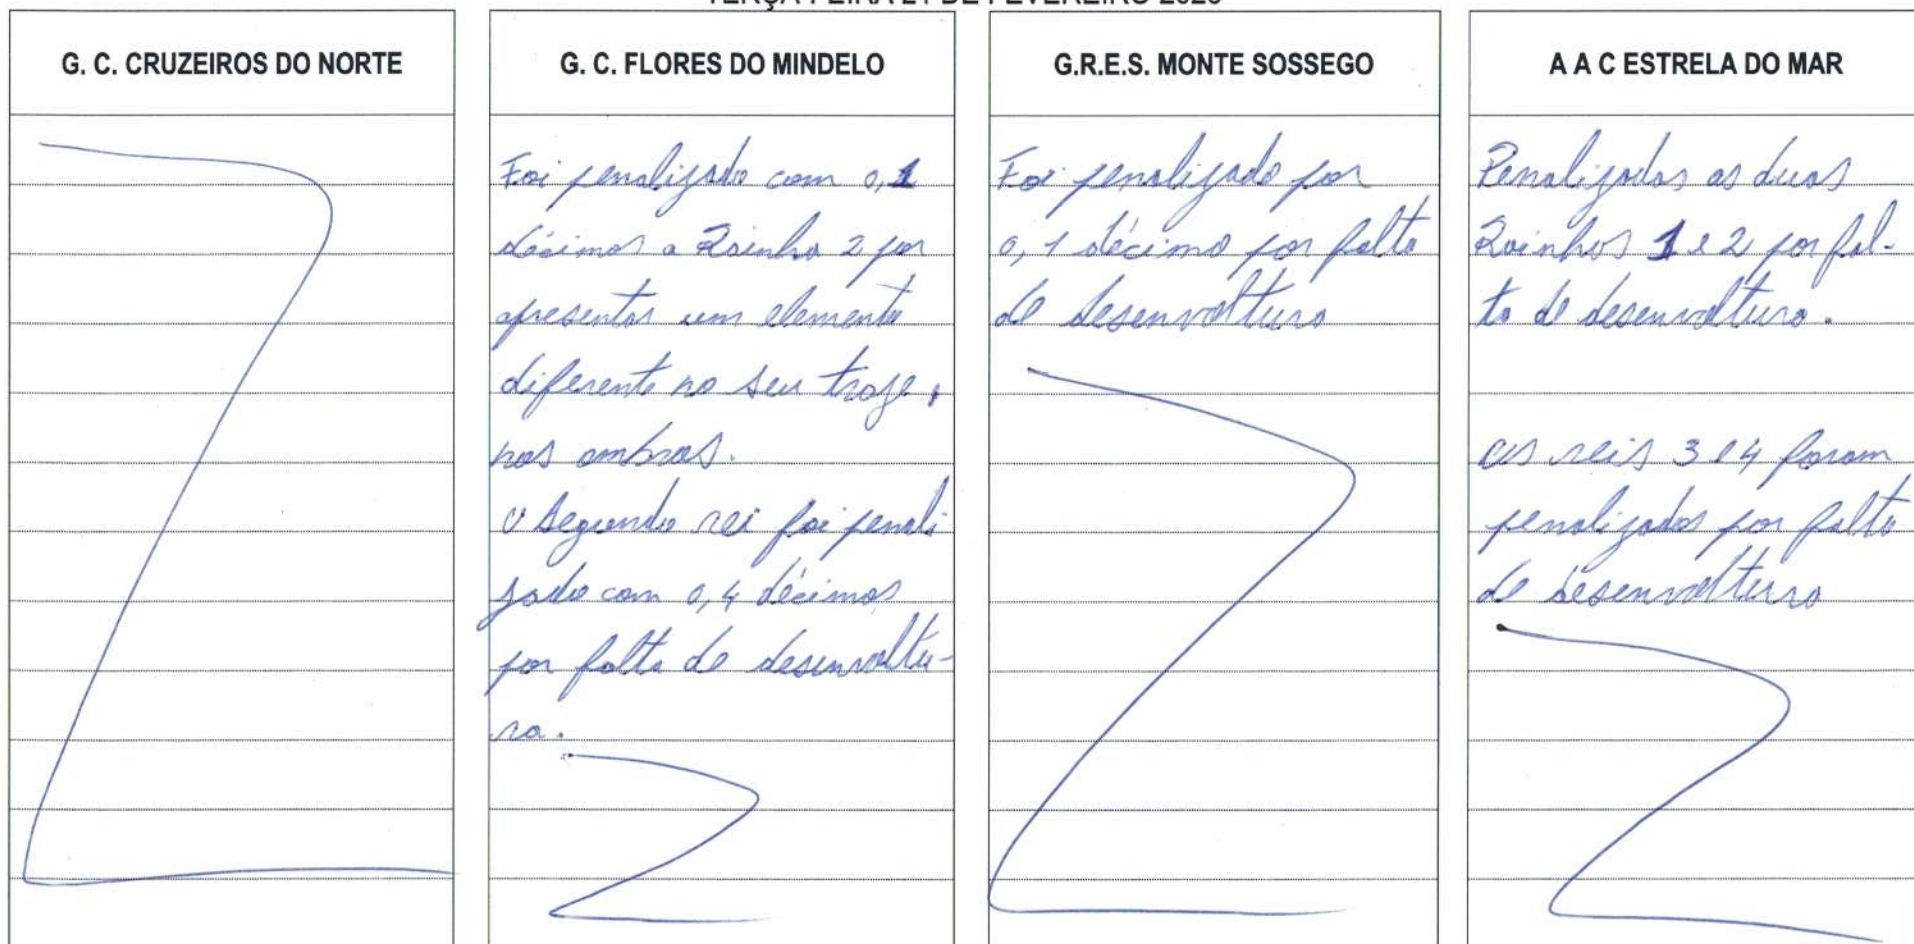 TERÇA-FEIRA 21 DE FEVEREIRO 2023
G. C. CRUZEIROS DO NORTE
G. C. FLORES DO MINDELO
Foi penalizado com 0,1
décimos a Rainha 2 por
apresentar um elemento
diferente no seu traje,
nos ombros.
O Segundo rei foi penali
zado com 0,4 décimos
por falta de desenvoltu-
ra.
G.R.E.S. MONTE SOSSEGO
Foi penalizado por
0,1 décimo por falta
de desenvoltura
A A C ESTRELA DO MAR
Penalizadas as duas
Rainhas 1 e 2 por fal-
ta de desenvoltura.
Os reis 3 e 4 foram
penalizados por falta
de desenvoltura